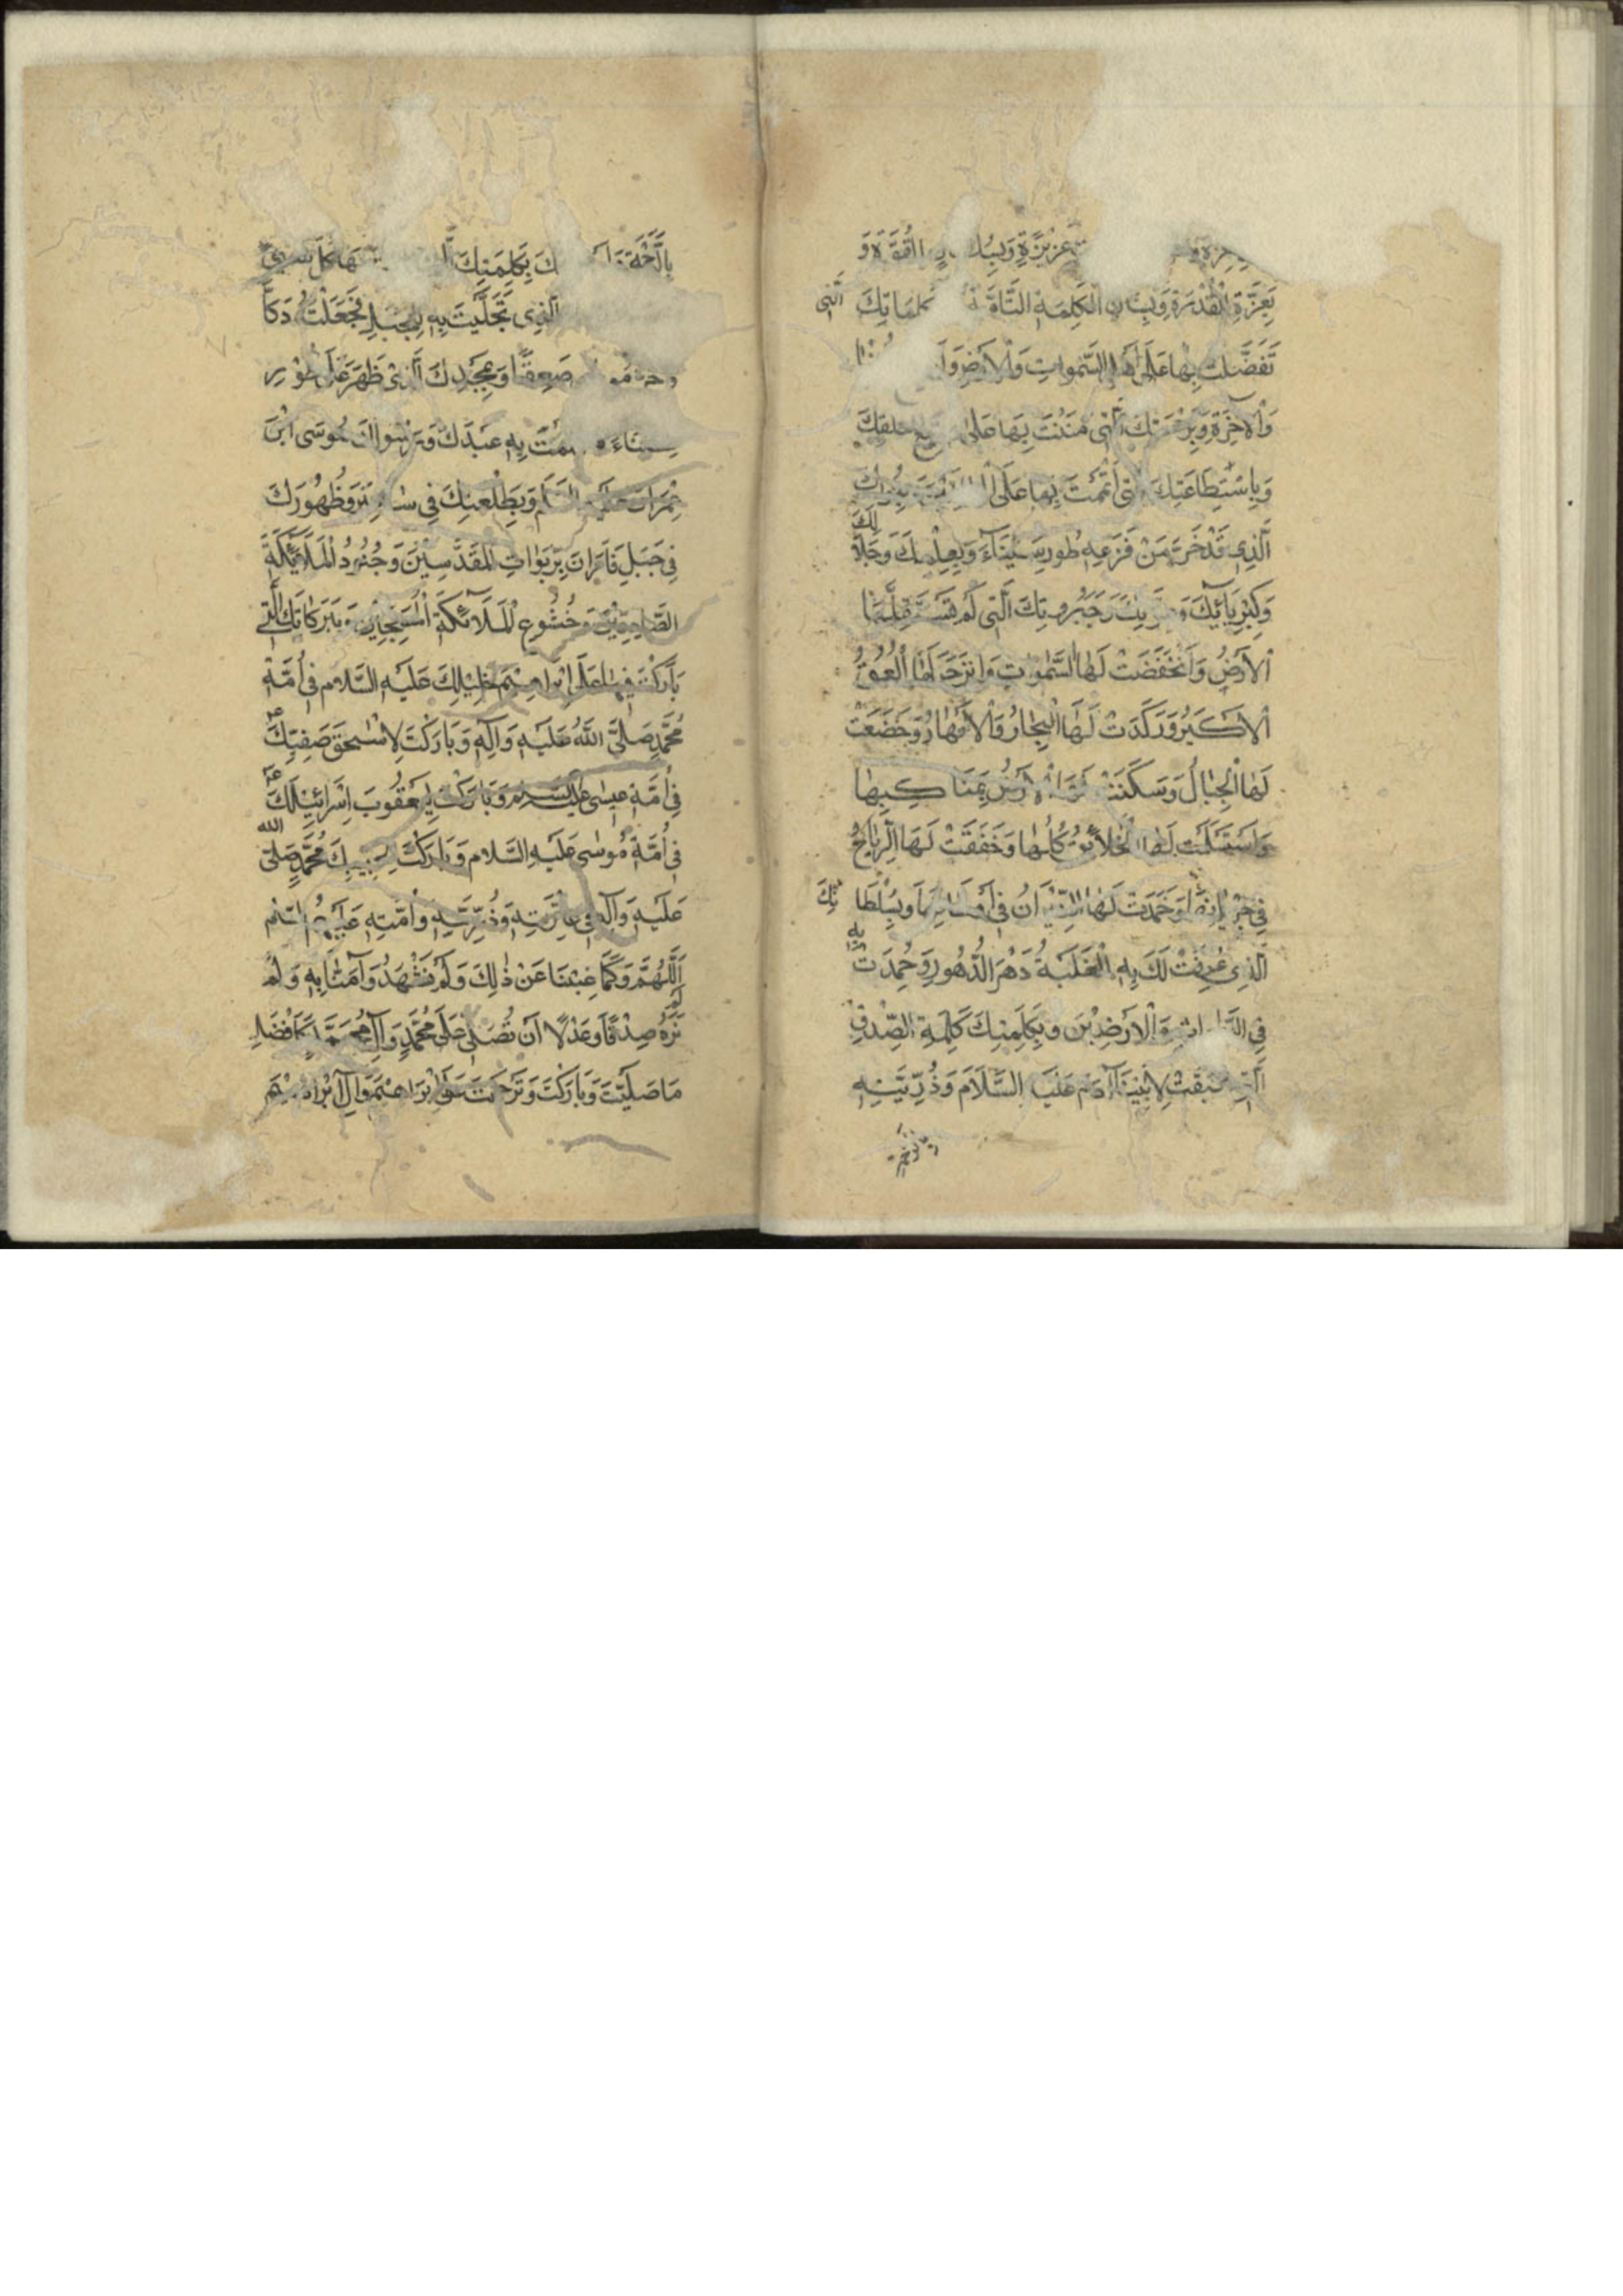 عَزِيزَةٍ وَبِسُلْطَانِ الْقُوَّةِ وَ
بِعِزَّةِ الْقُدْرَةِ وَبِشَانِ الْكَلِمَةِ التَّامَّةِ وَبِكَلِمَاتِكَ الَّتِي
تَفَضَّلْتَ بِهَا عَلَى أَهْلِ السَّمٰوَاتِ وَالْأَرْضِ وَأَهْلِ الدُّنْيَا
وَالْآخِرَةِ وَبِرَحْمَتِكَ الَّتِي مَنَنْتَ بِهَا عَلَى جَمِيعِ خَلْقِكَ
وَبِاسْتِطَاعَتِكَ الَّتِي أَقَمْتَ بِهَا عَلَى الْعَالَمِينَ وَبِنُورِكَ
الَّذِي قَدْ خَرَّ مِنْ فَزَعِهِ طُورِ سَيْنَاءَ وَبِعِلْمِكَ وَجَلَالِكَ
وَكِبْرِيَائِكَ وَعِزَّتِكَ وَجَبَرُوتِكَ الَّتِي لَمْ تَسْتَقِلَّهَا
الْأَرْضُ وَانْخَفَضَتْ لَهَا السَّمٰوَاتُ وَانْزَجَرَ لَهَا الْعُمْقُ
الْأَكْبَرُ وَرَكَدَتْ لَهَا الْبِحَارُ وَالْأَنْهَارُ وَخَضَعَتْ
لَهَا الْجِبَالُ وَسَكَنَتْ لَهَا الْأَرْضُ بِمَنَاكِبِهَا
وَاسْتَسْلَمَتْ لَهَا الْخَلَائِقُ كُلُّهَا وَخَفَقَتْ لَهَا الرِّيَاحُ
فِي جَرَيَانِهَا وَخَمَدَتْ لَهَا النِّيرَانُ فِي أَوْطَانِهَا وَبِسُلْطَانِكَ
الَّذِي عُرِفَتْ لَكَ بِهِ الْغَلَبَةُ دَهْرَ الدُّهُورِ وَحُمِدْتَ بِهِ
فِي السَّمٰوَاتِ وَالْأَرَضِينَ وَبِكَلِمَتِكَ كَلِمَةِ الصِّدْقِ
الَّتِي سَبَقَتْ لِأَبِينَا آدَمَ عَلَيْهِ السَّلَامُ وَذُرِّيَّتِهِ
بِالرَّحْمَةِ وَأَسْأَلُكَ بِكَلِمَتِكَ الَّتِي غَلَبَتْ كُلَّ شَيْءٍ
الَّذِي تَجَلَّيْتَ بِهِ لِلْجَبَلِ فَجَعَلْتَهُ دَكًّا
وَخَرَّ مُوسَى صَعِقًا وَبِمَجْدِكَ الَّذِي ظَهَرَ عَلَى طُورِ
سَيْنَاءَ فَكَلَّمْتَ بِهِ عَبْدَكَ وَرَسُولَكَ مُوسَى ابْنَ
عِمْرَانَ عَلَيْهِ السَّلَامُ وَبِطَلْعَتِكَ فِي سَاعِيرَ وَظُهُورِكَ
فِي جَبَلِ فَارَانَ بِرَبَوَاتِ الْمُقَدَّسِينَ وَجُنُودُ الْمَلَائِكَةِ
الصَّافِّينَ وَخُشُوعِ الْمَلَائِكَةِ الْمُسَبِّحِينَ وَبِبَرَكَاتِكَ الَّتِي
بَارَكْتَ فِيهَا عَلَى إِبْرَاهِيمَ خَلِيلِكَ عَلَيْهِ السَّلَامُ فِي أُمَّةِ
مُحَمَّدٍ صَلَّى اللهُ عَلَيْهِ وَآلِهِ وَبَارَكْتَ لِإِسْحٰقَ صَفِيِّكَ
فِي أُمَّةِ عِيسَى عَلَيْهِ السَّلَامُ وَبَارَكْتَ لِيَعْقُوبَ إِسْرَائِيلِكَ
فِي أُمَّةِ مُوسَى عَلَيْهِ السَّلَامُ وَبَارَكْتَ لِحَبِيبِكَ مُحَمَّدٍ صَلَّى الله
عَلَيْهِ وَآلِهِ فِي عِتْرَتِهِ وَذُرِّيَّتِهِ وَأُمَّتِهِ عَلَيْهِمُ السَّلَامُ
اَللّٰهُمَّ وَكَمَا غِبْنَا عَنْ ذٰلِكَ وَلَمْ نَشْهَدْهُ وَآمَنَّا بِهِ وَلَمْ
نَرَهُ صِدْقًا وَعَدْلًا أَنْ تُصَلِّيَ عَلَى مُحَمَّدٍ وَآلِ مُحَمَّدٍ كَأَفْضَلِ
مَا صَلَّيْتَ وَبَارَكْتَ وَتَرَحَّمْتَ عَلَى إِبْرَاهِيمَ وَآلِ إِبْرَاهِيمَ